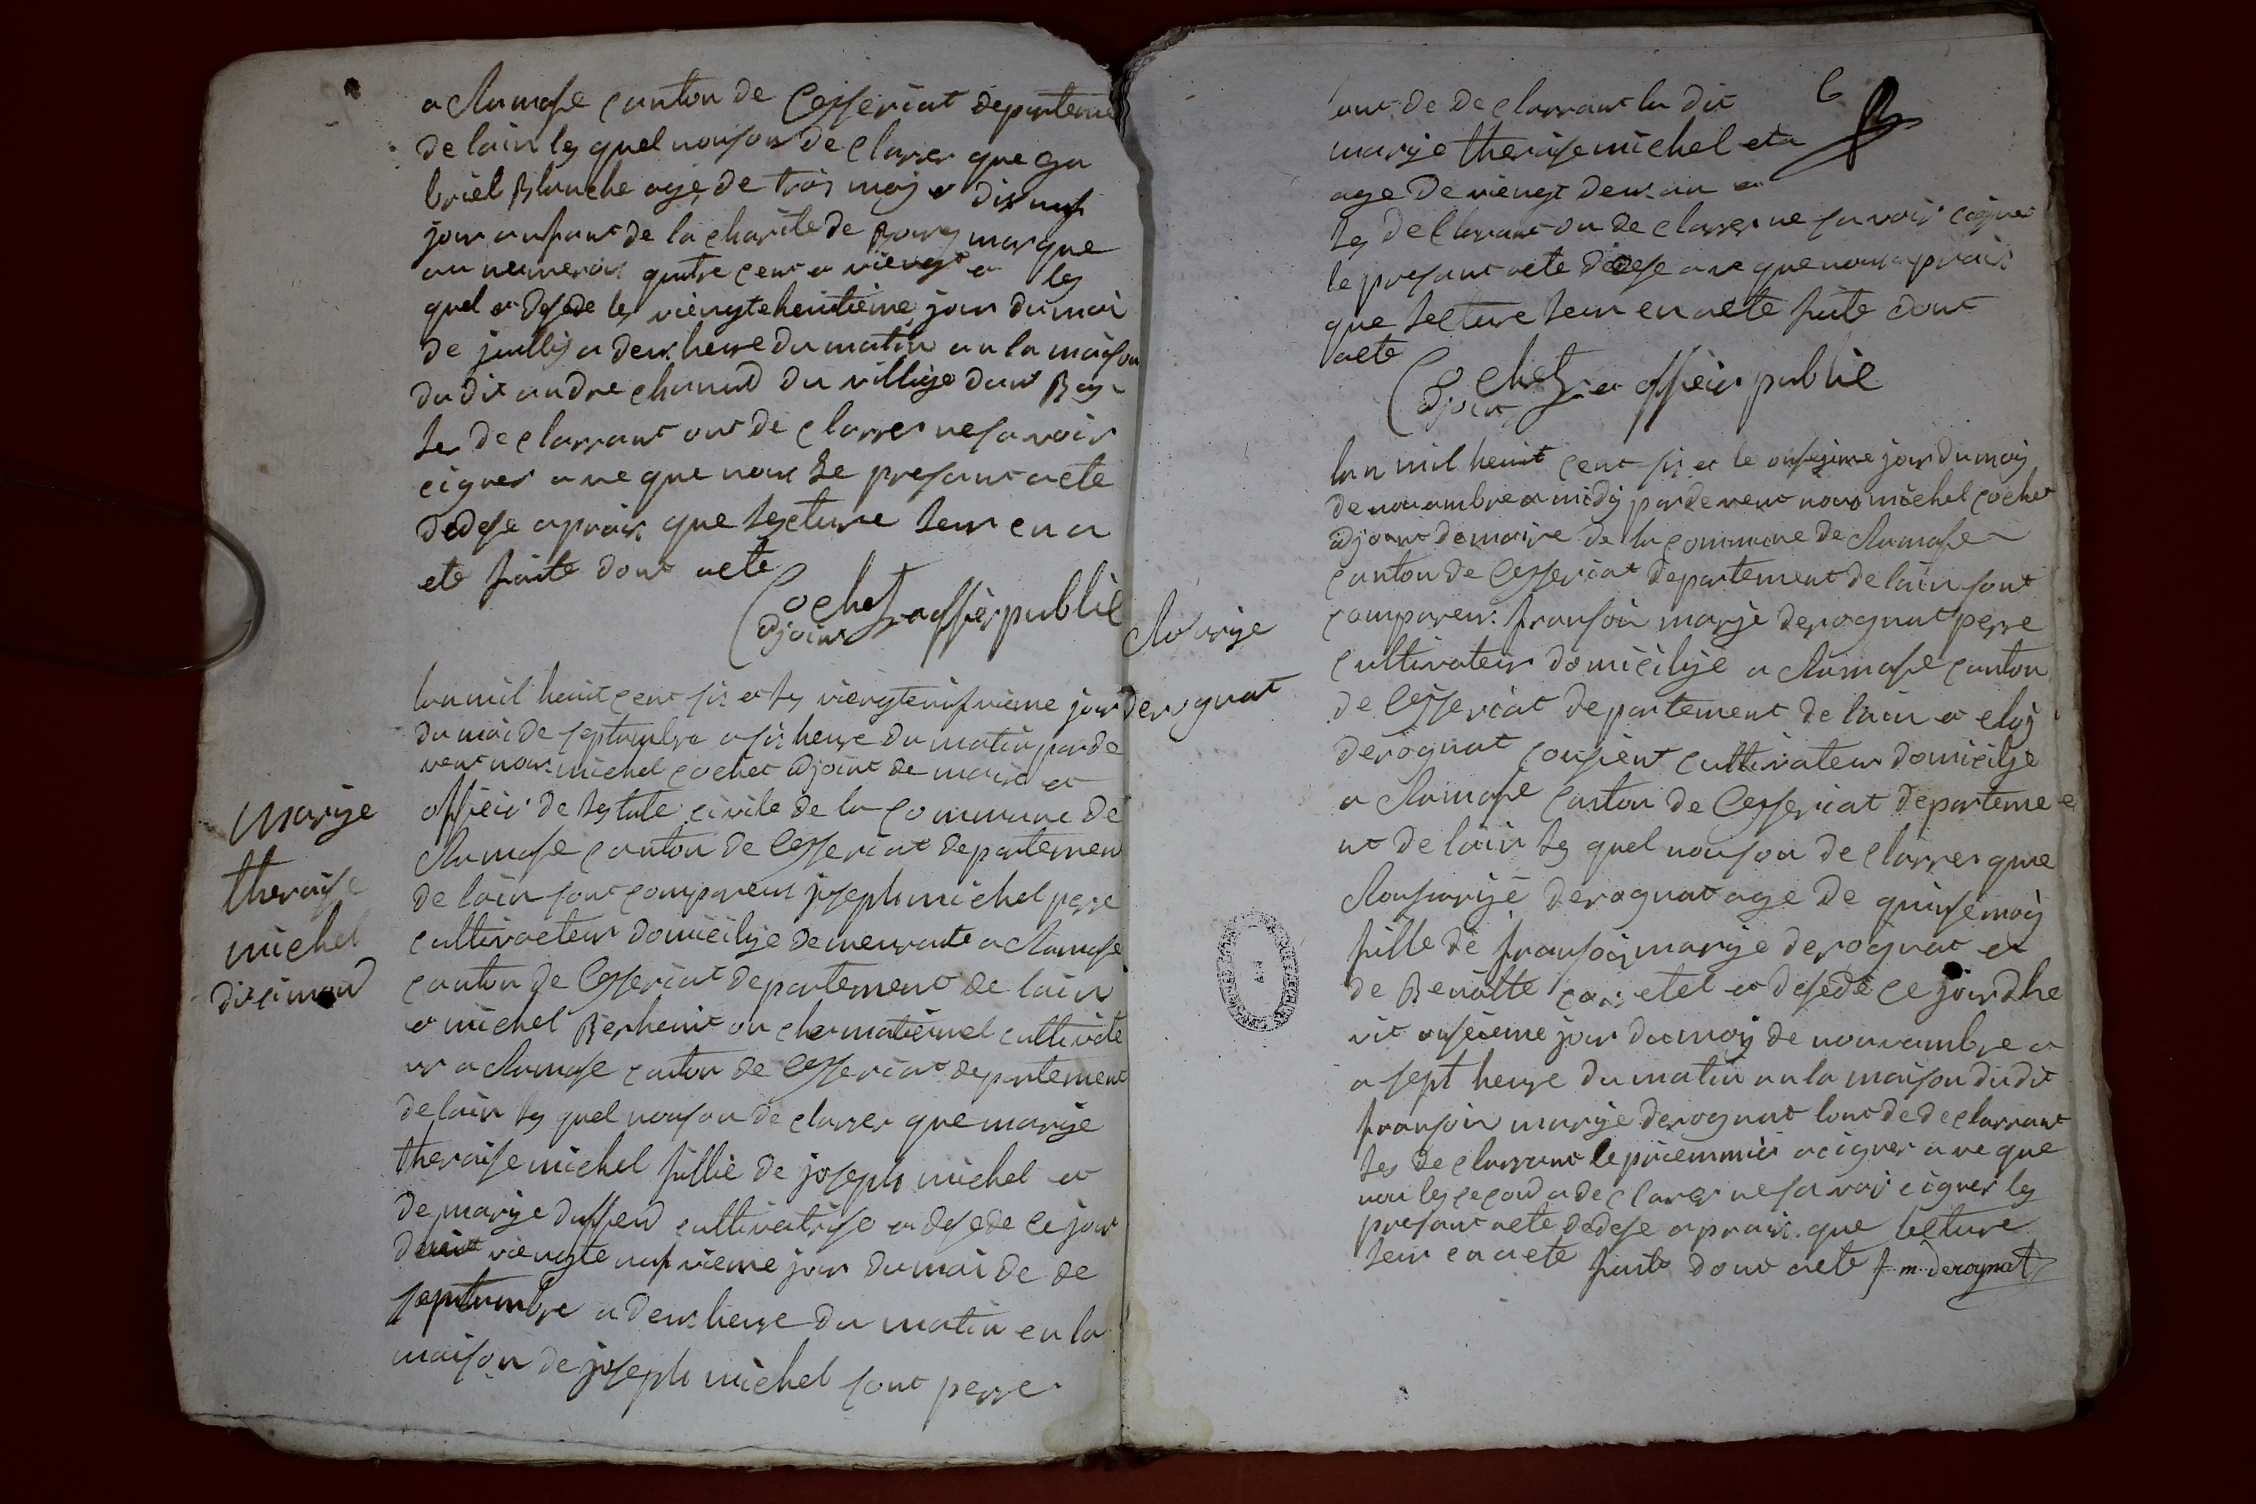 a Ramase canton de Cesseriat departeme
de lain les quel nouson de clarer que ga
briel Blanche age de trois mois et dix neuf
jour anfant de la charite de Bourg marque
au numerau quatre cent et viengt et les
quel et desede les viengtehenitième jour du moi
de juilliy a deux heure du matin an la maison
du dit andre chanud du village dans Ray
les de clarrant ont de clarrer ne savoir
cigner a ve que nous le presant acte
dedese aprais que lecture leur en a
ete faite dont acte
Cochet officier public
adjoint
lan mil henit cent sis et les viengtenifvième jour
du moi de septambre a sis heure du matin parde
vent nous michel cochet adjoint de maire et
officir de lestate civile de la commune de
Ramase canton de Cesseriat departemen
de lain sont comparens joseph michel perre
cultivacteur domicilije demeurante a Ramase
canton de Cesseriat departement de lain
et michel Berhenit on cle matternel cultivate
ur a Ramase canton de Cesseriat departement
de lain les quel nouson de clarrer que marije
theraise michel fillie de joseph michel et
de marije dufend cultivatrise et desede ce jour
denit viengte nufvieme jour du moi de de
septambre a deux heure du matin en la
maison de joseph michel sont perre
marije
theraise
michel
dit simond
lun de de clarrant la dit
marije theraise michel eta
age de viengt deux an et
les de clarrant on de clarrer ne savoir cigner
le presant acte dedese a ve que nous aprais
que lecture leur en aete faite dont
acte
Cochet officier public
adjoint
6
Rosarije
derognat
lan mil henit cent sis et le onsyime jour du moy
de novambre a midy pardevent nous michel cochet
adjoint de maire de la commune de Ramase
canton de Cesseriat departement de lain sont
comparens fransoi marije derognat perre
cultivateur domicilije a Ramase canton
de Cesseriat departement de lain et eloy
derognat cousient cultivateur domicilije
a Ramase canton de Cesseriat departeme
nt de lain les quel nouson de clarrer que
Rosarije derognat age de quinse moy
fille de fransoy marije derognat et
de Benoitte etel et desede ce jourdhe
vit onsieme jour du moy de novambre a
a sept heure du matin an la maison du dit
fransoi marije derognat lunt de de clarrant
les de clarrant le priemmiei a cigner a ve que
nou les cecond a de clarer ne savoir cigner les
presant acte dedese aprais que lecture
leur en aete faite dont acte f. m. derognat